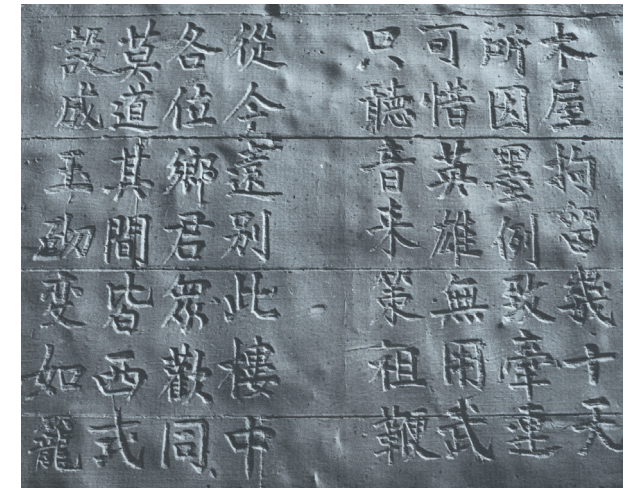 木屋拘留幾十天
所因墨例致牽連
可惜英雄無用武
只聽音来策祖鞭
從今遠別此樓中
各位鄉君眾歡同
莫道其間皆西式
設成玉砌变如籠